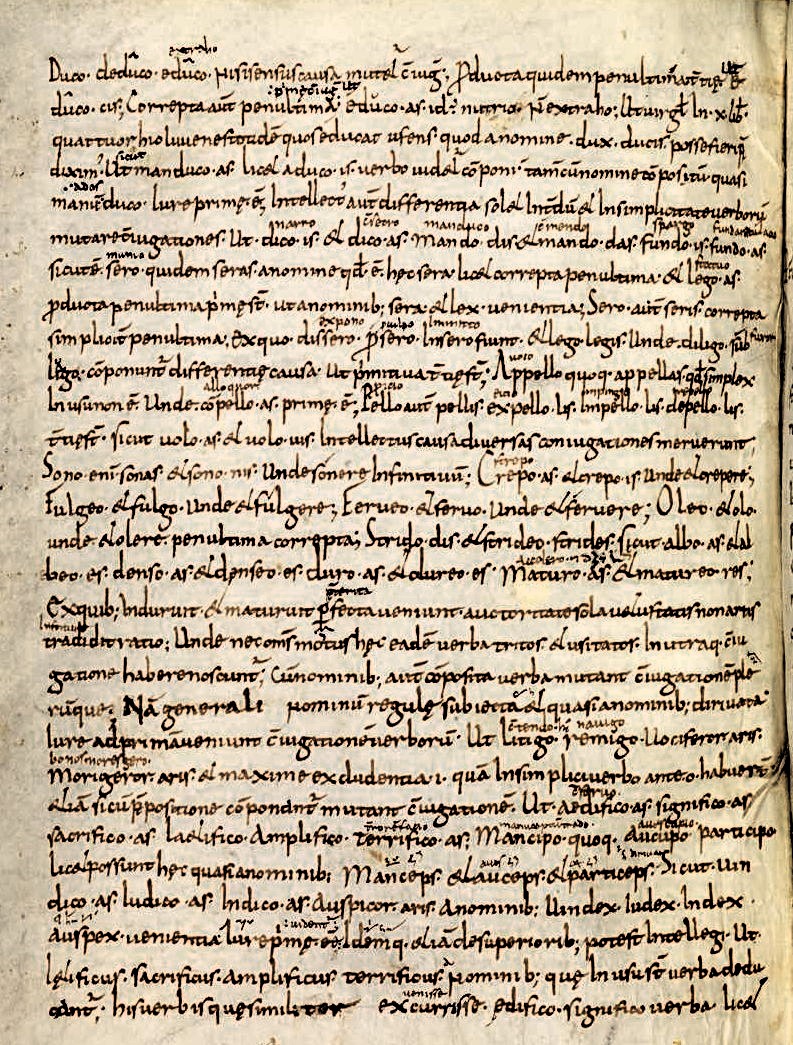 extraho
Duco. deduco. educo. Nisi sensus causa mutet̄ c̄iug̅; Producta quidem penultima t̄tię ē̄
duco. cis; Correpta aut̄ penultima. educo. as. id; nutrio. N̄ extraho; Ut uirgł In. x. lib̄.
quattuor hic iuuenes totidē quos educat ufens quod a nomine. dux. ducis. posse fieri
sicut
diximˀ. Ut manduco. as. licet a duco. is. uerbo uidet̄ cōponi. tamē cū nomine cōpositū quasi
manū duco. Iure prime. ē; Intellectˀ aut̄ differentia solet Int̄dū & In simplicitate uerborū
narro manduco cōmendo spargo
mutare c̄iugationes. Ut. dico. is. & dico. as. Mando. dis. & mando. das. fundo. is. fundo. as.
munio
sicut ē. sero. quidem seras. a nomine qđ. ē. hęc sera. licet correpta penultima. & lego. as.
producta penultima primę st̄. ut a nominib; sera. & lex. uenientia; Sero. aut̄ seris. correpta
expono Inmitto
simplicit̄ penultima. Ex quo. dissero. p̄sero. Insero fiunt. & lego. legis. Unde. diligo. sub
lego. cōponunt̄. differentię causa. Ut p̄mitiua t̄tię st̄; Appello quoq. appellas. qđ simplex
alloquor
In usu non ē. Unde. cōpello. as. primę. ē; Pello aut̄ pellis. expello. lis. Impello. lis. depello. lis.
t̄tię st̄. sicut uolo. as. & uolo. uis. Intellectus causa diuersas coniugationes meruerunt
Sono. eni sonas. & sono. nis. Unde sonere Infinitiuū; Crepo. as. & crepo. is. Unde & crepere;
Fulgeo. & fulgo. Unde & fulgere; Ferueo. & feruo. Unde & feruere; Oleo. & olo.
unde & olere. penultima correpta; Strido. dis. & strideo. strides. Sicut. albo. as. & al
beo. es. denso. as. & denseo. es. duro. as. & dureo. es. Maturo. as. & matureo. res;
Ex quib; Indurui. & maturui p̄fecta ueniunt. auctoritate sola uetustatis non artis
tradidit ratio; Unde nec om̄s hęc eadē uerba tritos. & usitatos. In utraq. c̄iu
gatione habere noscunt̄; Cū nominib; aut̄ cōposita uerba mutant c̄iugationē ple
rūque. Nā generali nominū regulę subiecta & quasi a nominib; diriuata
c̄tendo nauigo
Iure ad primā ueniunt c̄iugationē uerborū. Ut Litigo. remigo. Uociferor. aris.
Morigeror. aris. & maxime excludentia. i. quā In simplici uerbo ante. o. habuert̄
etiā sicut p̄positione cōponunt̄ mutant c̄iugationē. Ut. aedifico. as. significo. as
sacrifico. as. laetifico. Amplifico. terrifico. as; Mancipo. quoq. aucupo. participo
licet possunt hęc quasi a nominib; Manceps. & auceps. & particeps. Sicut. uin
dico. as. Iudico. as. Indico. as. Auspicor. aris. A nominib; Uindex. Iudex. Index
auspex. uenientia Iure primę. ēē; Idemq. etiā de superiorib; potest Intellegi. Ut.
lętificus. sacrificus. amplificus. terrificus. Nominib; quę In usu st̄ uerba dedu
cunt̄; his uerbis quę similiter excurrisse. ędifico. significo uerba licet